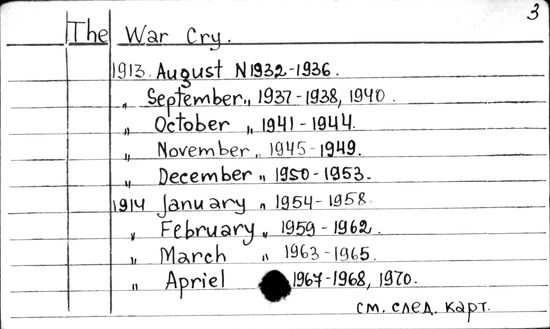 3
The War Cry.
1913. August N1932-1936.
„ September „ 1937-1938, 1940.
„ October „ 1941-1944.
„ November „ 1945-1949.
„ December „ 1950-1953.
1914 January „ 1954-1958.
„ February „ 1959-1962.
„ March „ 1963-1965.
„ Apriel 1967-1968, 1970.
см. след. карт.